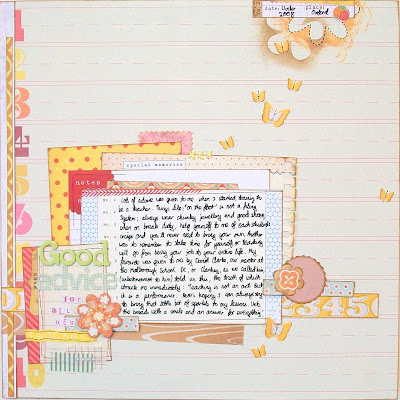 date:
2008
place:
Oxford
1
2
3
4
5
6
7
special memories
notes
Lots of advice was given to me when I started training to
be a teacher. Things like: 'on the floor' is not a filing
system; always wear chunky jewellery and good shoes;
when on break duty, help yourself to one of each student's
crisps and you'll never need to bring your own. Another
was to remember to take time for yourself or teaching
will go from being your job to your entire life. My
favourite was given to me by David Clarke, our master at
the Marlborough School. DC, or Clarkey, as we called him
told us this, the truth of which
struck me immediately: Teaching is not an act but
it is a performance. Here's hoping I can always
to bring that little bit of sparkle to my lessons. Hit
the boards with a smile and an answer for everything!
Good
advice
for
a
345